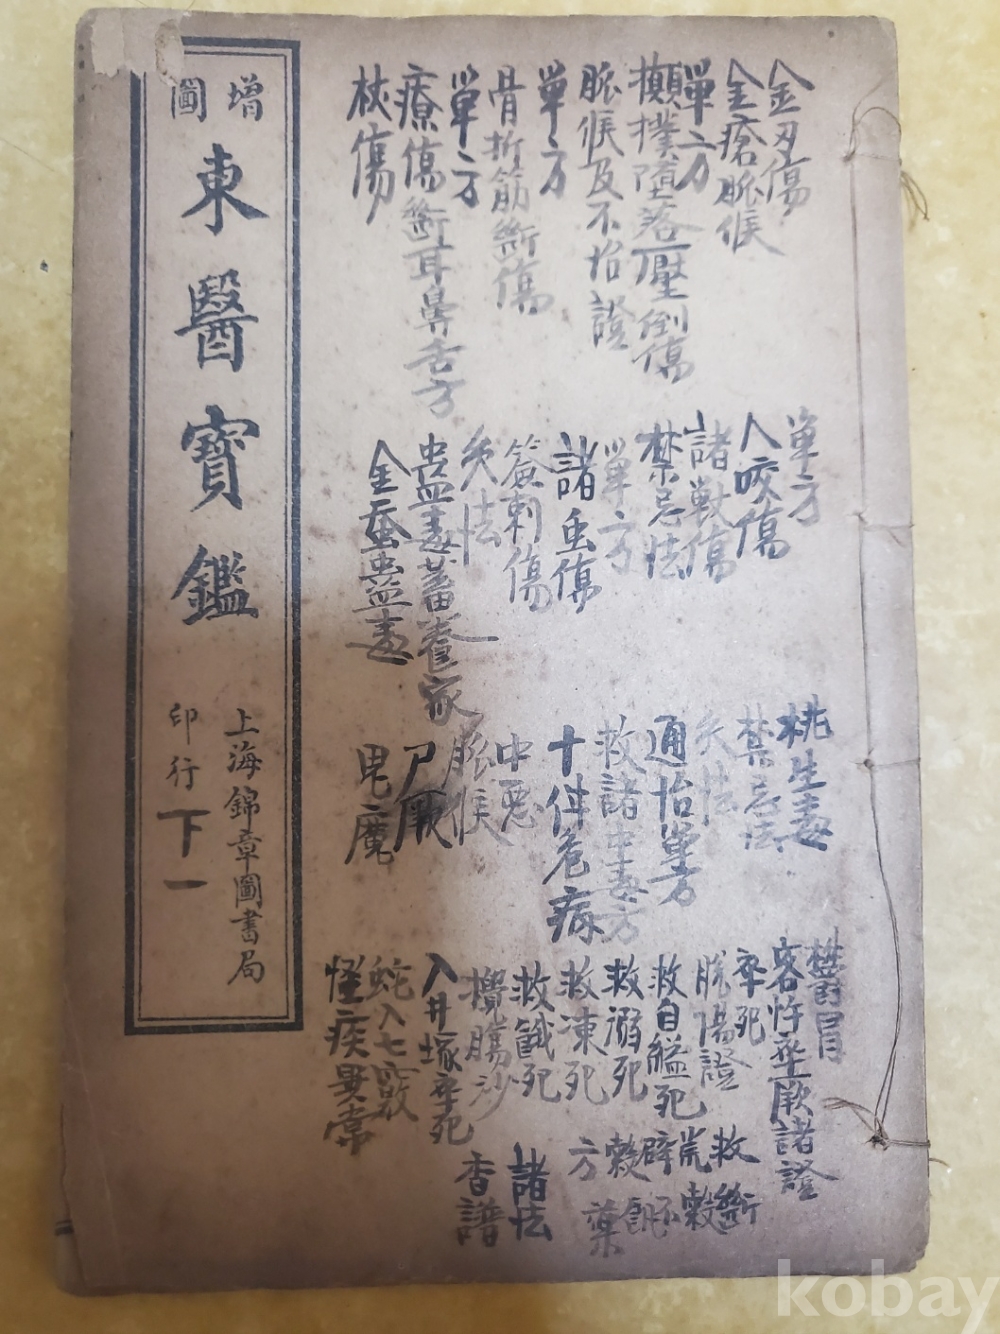 增圖
東醫寶鑑
上海錦章圖書局
印行 下一
金刃傷
金瘡脈候
單方
攧撲墮落壓倒傷
脈候及不治證
單方
骨折筋斷傷
單方
療傷斷耳鼻舌方
杖傷
單方
人咬傷
諸獸傷
禁忌法
單方
諸虫傷
簽刺傷
灸法
蠱毒蓄養家
金蚕蠱毒
桃生毒
禁忌法
灸法
通治單方
救諸中毒方
十件危病
中惡
脈候
尸厥
鬼魘
鬱冒
客忤卒厥諸證
卒死
脫陽證
救自縊死
救溺死
救凍死
救餓死
攪腸沙
入井塚卒死
蛇入七竅
怪疾異常
救斷穀
諸法
香譜
kobay